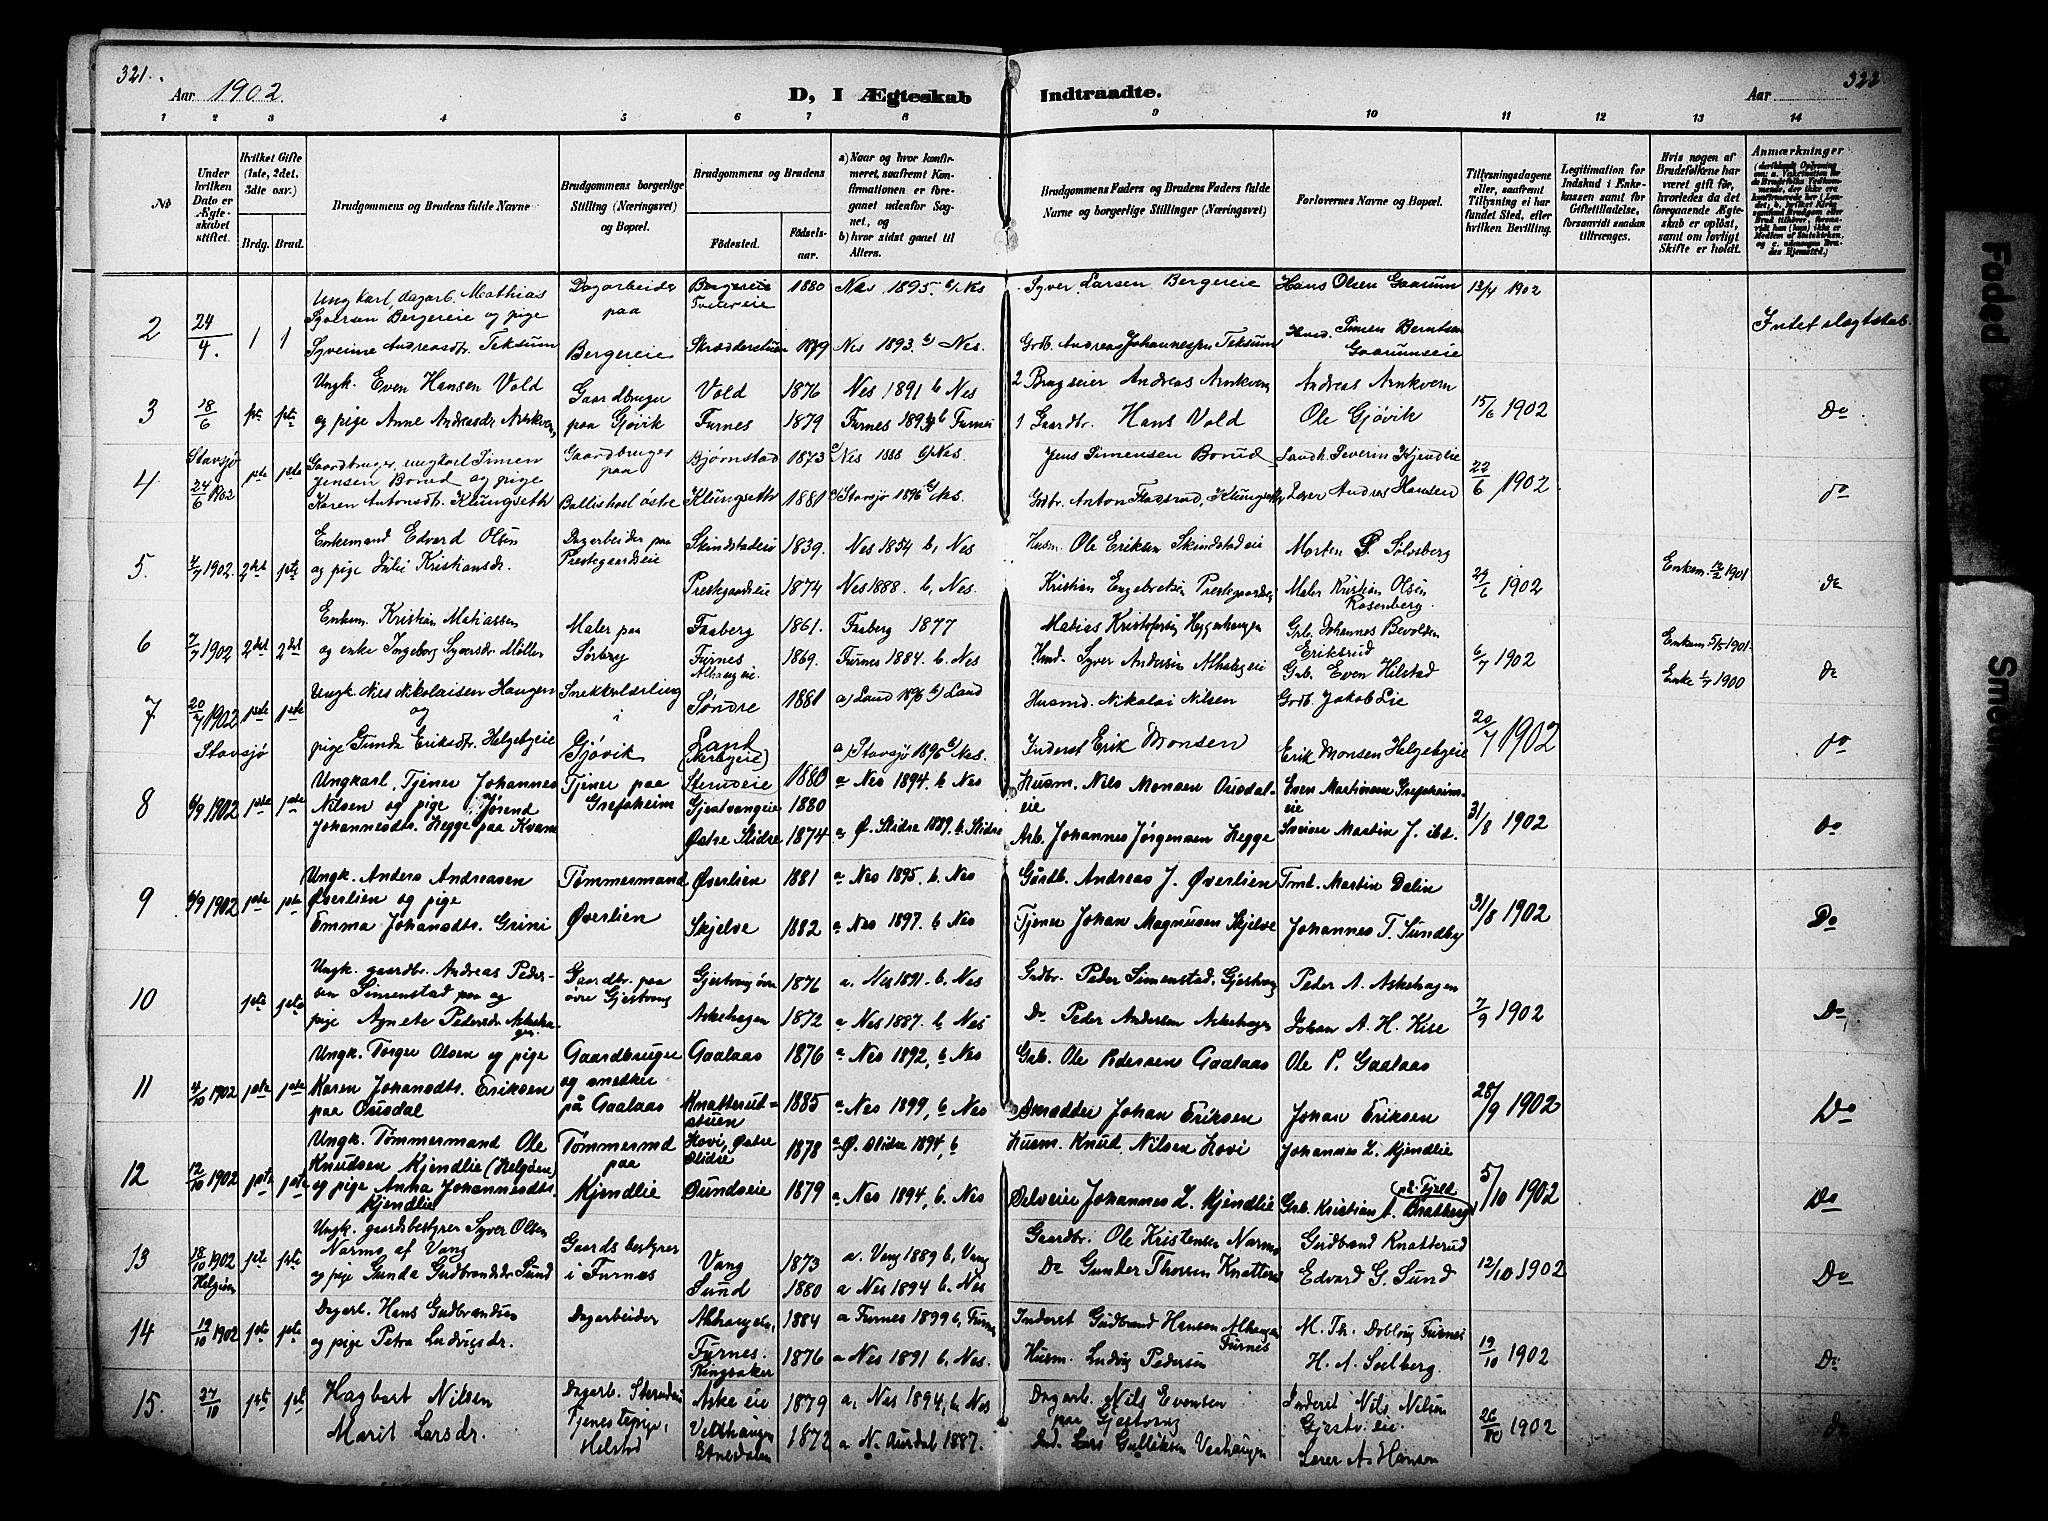 321.
Aar 1902.
D, I Ægteskab Indtraadte.
Aar
322
1 2 3 4 5 6 7 8 9 10 11 12 13 14
No
Under hvilken Dato er Ægteskabet stiftet.
Hvilket Gifte (1ste, 2det, 3die osv.)
Brdg. Brud.
Brudgommens og Brudens fulde Navne
Brudgommens borgerlige Stilling (Næringsvei) og Bopæl.
Brudgommens og Brudens
Fødested.
Fødselsaar.
a) Naar og hvor konfirmeret, saafremt Konfirmationen er foregaaet udenfor Sognet, og
b) hvor sidst gaaet til Alters.
Brudgommens Faders og Brudens Faders fulde Navne og borgerlige Stillinger (Næringsvei)
Forlovernes Navne og Bopæl.
Tillysningsdagene eller, saafremt Tillysning ei har fundet Sted, efter hvilken Bevilling.
Legitimation for Indskud i Enkekassen samt for Giftetilladelse, forsaavidt saadan tiltrænges.
Hvis nogen af Brudefolkene har været gift før, hvorledes da det foregaaende Ægteskab er opløst, samt om lovligt Skifte er holdt.
Anmærkninger
2 24/4. 1 1
Ungkarl, dagarb. Mathias
Syversen Bergereie og pige
Syverine Andreasdtr. Teksum
Dagarbeider paa Bergereie
Bergereie 1880 Nes 1895. b/ Nes
1879 Nes 1893. b) Nes.
Syver Larsen Bergereie
Grdb. Andreas Johannessen Teksum
Hans Olsen Gaarum
Husd. Simen Berntsen Gaarumseie
13/4 1902
Intet slægtskab.
3 18/6 1ste 1ste
Ungk. Even Hansen Vold
og pige Anne Andreasdr. Arnkvern
Gaardbruger paa Gjøvik
Vold 1876 Nes 1891 b Nes
Furnes 1879 Furnes 1894 b Furnes
2 Brugseier Andreas Arnkvern
1 Gaardbr. Hans Vold
Andreas Arnkvern
Ole Gjøvik
15/6 1902
Do
4 Stavsjø 24/6 1902 1ste 1ste
Gaardbruger, ungkarl Simen
Jensen Borud og pige
Karen Antonsdtr. Klungseth
Gaardbruger paa Ballishoel østre
Bjørnstad 1873 a/ Nes 1888 b) Nes.
Klungseth 1881 a/ Stavsjø 1896 b/ Nes.
Jens Simensen Borud
Grdb. Anton Klungseth
Landh. Severin Kjendlie
Lærer Andreas Hansen
22/6 1902
do
5. 7/7 1902. 2det 1ste
Enkemand Edvard Olsen
og pige Julie Kristiansdr.
Dagarbeider paa Prestegaardseie
Skindstadeie 1839. Nes 1854 b, Nes
Prestegaardseie 1874 Nes 1888. b, Nes.
Husm. Ole Eriksen Skindstadeie
Kristian Engebretsen Prestegaardseie
Morten P. Solsberg
Maler Kristian Olsen Rosenberg.
29/6 1902
Enkem. 1901
do
6 7/7 1902 2det 2det
Enkem. Kristian Matiassen
og enke Ingeborg Syversdr. Møller
Maler paa Sørberg
Faaberg 1861. Faaberg 1877
Furnes Alhaugeie. 1869. Furnes 1884. b. Nes
Matias Kristofersen Heggenhaugen
Husmd. Syver Andersen Alhaugeie
Grb. Johannes Bevolden Eriksrud
Grb. Even Hilstad
6/7 1902
Enkem 5/5 1901.
Enke 1/7 1900
do
7 20/7 1902 Stavsjø 1ste 1ste
Ungk. Nils Nikolaisen Haugen
og
pige Gunda Eriksdtr. Helgebyeie
Snekkerlærling i Gjøvik
Søndre Land 1881 a) Land 1896 b) Land
a/ Stavsjø 1896 b/ Nes.
Husmd. Nikolai Nilsen
Inderst Erik Monsen
Grdb. Jakob Lie
Erik Monsen Helgebyeie
20/7 1902
do
8 6/9 1902 1ste 1ste
Ungkarl, Tjener Johannes
Nilsen og pige Jørend
Johannesdtr. Hegge paa Kvam
Tjener paa Grefsheim
1880 a Nes 1894. b Nes
Gjestvangeie 1880
Østre Slidre 1874 a Ø. Slidre 1889. b. Slidre
Husm. Nils Monsen Ousdaleie
Arb. Johannes Jørgensen Hegge
Even Martinsen Grefsheimseie
Sveiser Martin J. ibd.
31/8 1902
do
9 6/9 1902 1ste 1ste
Ungk. Anders Andreasen
Øverlien og pige
Emma Johansdtr. Grini
Tømmermand Øverlien
Øverlien 1881 a Nes 1895. b. Nes
Skjelve 1882 a Nes 1897. b Nes
Gårdb. Andreas J. Øverlien
Tjener Johan Magnusen Skjelve
Tmd. Martin Dalin
Johannes T. Sundby
31/8 1902
Do
10 1ste 1ste
Ungk. gaardbr. Andreas Pedersen
Simenstad paa og
pige Agnete Pedersdr. Askehagen
Gaardbr. paa øvre Gjestvang
Gjestvang øvre 1876 a. Nes 1891. b Nes
Askehagen 1872 a Nes 1887. b, Nes
Gaardbr. Peder Simenstad, Gjestvang
Do Peder Andersen Askehagen
Peder A. Askehagen
Johan A. H. Kise
7/9 1902
Do
11 4/10 1902 1ste 1ste
Ungk. Torger Olsen og pige
Karen Johansdtr. Eriksen
paa Ousdal
Gaardbruger og snedker på Gaalaas
Gaalaas 1876 a Nes 1892, b Nes
Knatterudstuen 1885 a Nes 1899, b Nes
Grb. Ole Pedersen Gaalaas
Skrædder Johan Eriksen
Ole P. Gaalaas
Johan Eriksen
28/9 1902
Do
12 12/10 1902 1ste 1ste
Ungk. Tømmermand Ole
Knudsen Kjendlie (Helgøen)
og pige Anna Johannesdtr.
Kjendlie
Tømmermd paa Kjendlie
Hovi, Østre Slidre 1878 a Ø. Slidre 1894, b
Sundseie 1879 a Nes 1894, b. Nes
Husm. Knud Nilsen Hovi
Selveier Johannes L. Kjendlie
Johannes L. Kjendlie
Grb. Kristian A. Bratberg
5/10 1902
Do
13 18/10 1902 Helgøen 1ste 1ste
Ungk. gaardsbestyrer Syver Olsen
Narmo af Vang
og pige Gunda Gudbrandsdr. Sund
Gaardsbestyrer i Furnes
Vang 1873 a. Vang 1889 b, Vang
Sund 1880 a Nes 1894. b. Nes
Gaardbr. Ole Kristensen Narmo
Do Gunder Thorsen Knatterud
Gudbrand Knatterud
Edvard G. Sund
12/10 1902
Do
14 19/10 1902 1ste 1ste
Dagarb. Hans Gudbrandsen
og pige Petra Ludvigsdr.
Dagarbeider
Alhaugeie, Furnes. 1884 a Furnes 1899 b, Furnes
Ringsaker 1876 a Nes 1891 b. Nes.
Inderst Gudbrand Hansen Alhaugen Furnes
Husm. Ludvig Pedersen
M. Th. Dobloug Furnes
H. A. Soelberg.
19/10 1902
Do
15. 27/10 1ste 1ste
Hagbart Nilsen
Marit Larsdr.
Dagarb.
Tjenestepige, Helstad
Askeeie 1879 a, Nes 1894, b, Nes
Etnedalen 1872 a N. Aurdal 1887.
Dagarb. Nils Evensen paa Gjestvang
Lars Gulliksen Veahaugen
Inderst Nils Nilsen Gjestv. eie.
Lærer A. Hanson
26/10 1902
do
Faded